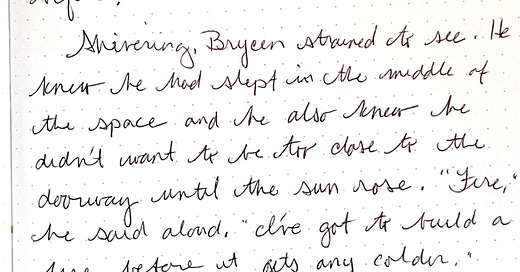 Shivering, Bryeen strained to see. He
knew he had slept in the middle of
the space and he also knew he
didn't want to be too close to the
doorway until the sun rose. "Fire,"
he said aloud. "I've got to build a
fire before it gets any colder."